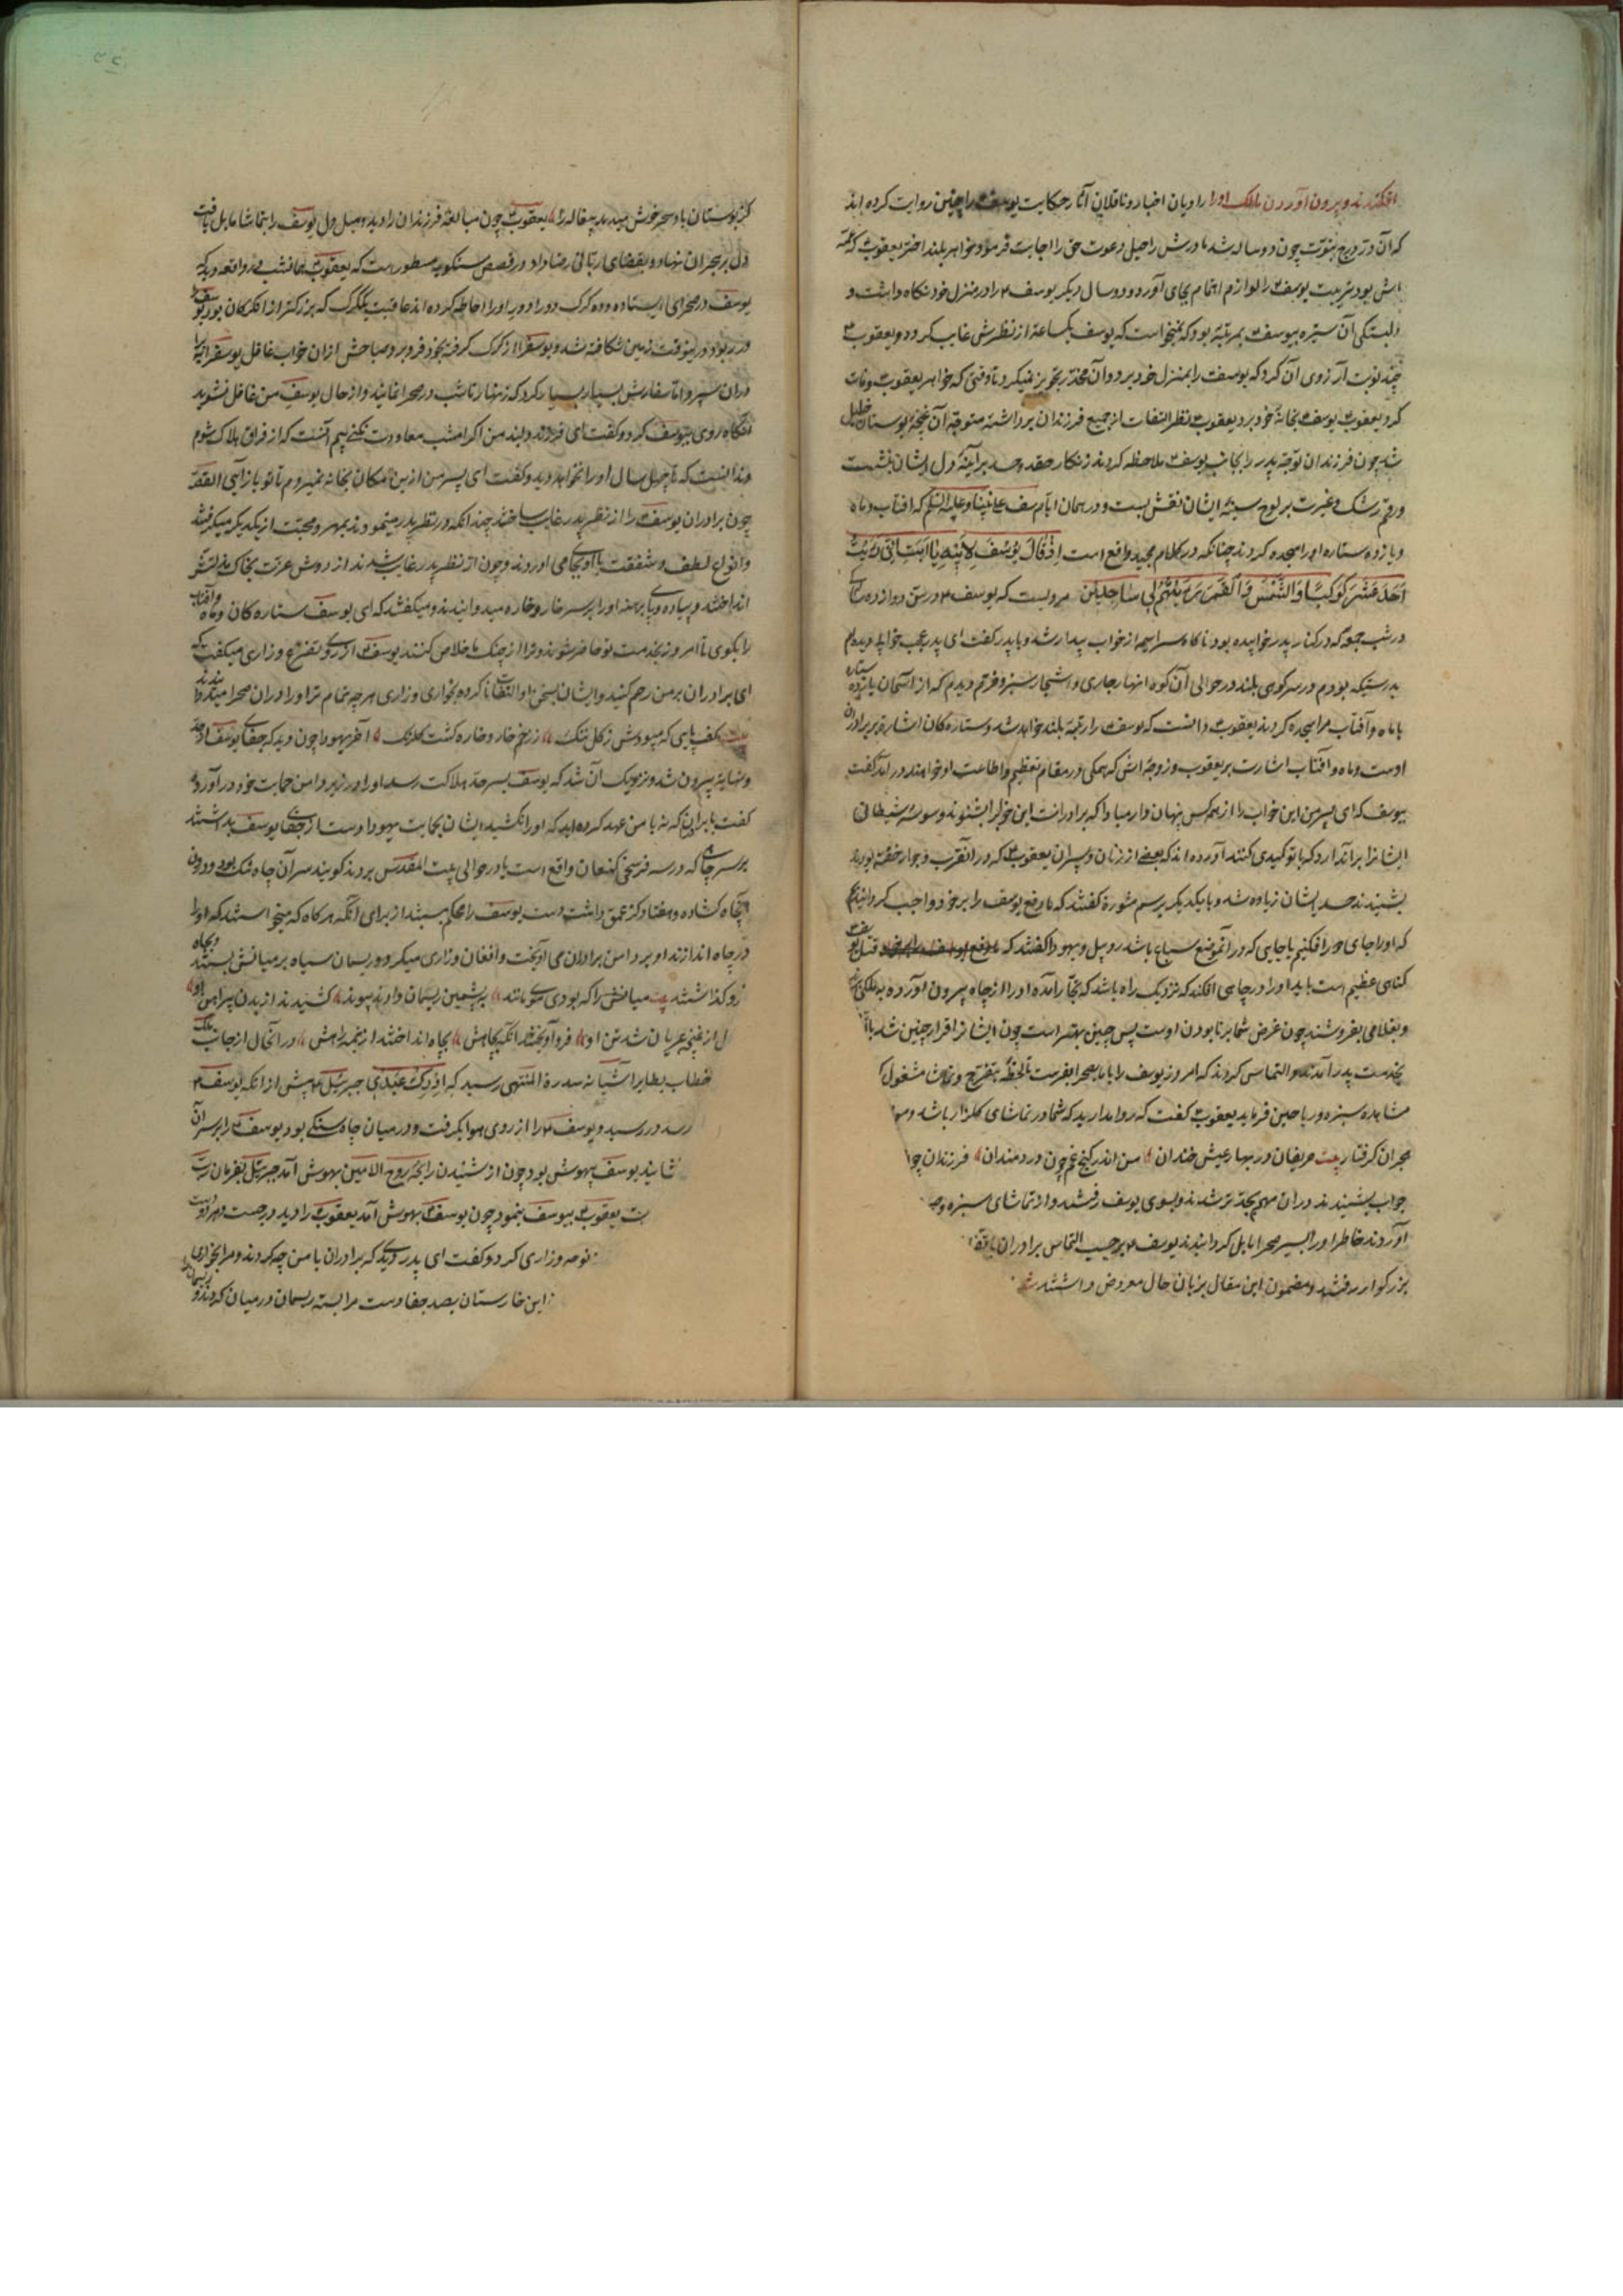 افکندند و بیرون آوردن مالک او را راویان اخبار و ناقلان آثار حکایت یوسف را چنین روایت کرده اند
که آن در درج نبوت چون دو ساله شد مادرش راحیل دعوت حق را اجابت فرمود و خواهر بلند اختر یعقوب که عمه
اش بود بتربیت یوسف ۴ را لوازم اهتمام بجای آورد و دو سال دیگر یوسف ۴ را در منزل خود نگاه داشت و
دلبستگی آن ستیره بیوسف ۴ بمرتبه بود که نمیخواست که یوسف یکساعة از نظرش غایب گردد و یعقوب ۴
چند نوبت آرزوی آن کرد که یوسف را بمنزل خود برد و آن مخدره تجویز نمیکرد تا وقتی که خواهر یعقوب وفات
کرد یعقوب ۴ یوسف ۴ بخانه خود برد یعقوب ۴ نظر التفات از جمیع فرزندان برداشته متوجه آن غنچه بوستان خلیل
شد چون فرزندان توجه پدر را بجانب یوسف ۴ ملاحظه کردند زنکار حقد و حسد بر آینه دل ایشان نشست
و رقم رشک و غیرت بر لوح سینه ایشان نقش بست و در همان ایام یوسف علی نبینا و علیه السلم که افتاب و ماه
و یازده ستاره او را سجده کردند چنانکه در کلام مجید واقع است اِذْ قَالَ یُوسُفُ لِاَبِیهِ یَا اَبَتِ اِنِّی رَاَیْتُ
اَحَدَ عَشَرَ کَوْکَبًا وَالشَّمْسَ وَالْقَمَرَ رَاَیْتُهُمْ لِی سَاجِدِینَ مرویست که یوسف ۴ در سن دوازده سالگی
در شب جمعه که در کنار پدر خوابیده بود ناکاه سراسیمه از خواب بیدار شد و با پدر گفت ای پدر عجب خوابی دیدم
بدرستیکه بودم در سر کوهی بلند در حوالی آن کوه انهار جاری و اشجار سبز و خرم دیدم که از اسمان یازده ستاره
با ماه و آفتاب مرا سجده کردند یعقوب ۴ دانست که یوسف ۴ را رتبه بلند خواهد شد و ستاره کان اشاره بر برادران
اوست و ماه و آفتاب اشارت بر یعقوب و زوجه اش که همکی در مقام تعظیم و اطاعت او خواهند در آمد گفت
بیوسف که ای پسر من این خواب را از همه کس پنهان دار مبادا که برادرانت این خواب را بشنوند و وسوسه شیطانی
ایشانرا بر آن دارد که با تو کیدی کنند آورده اند که بعضی از زنان و پسران یعقوب ۴ که در آنقرب و جوار خفته بودند
بشنیدند حسد ایشان زیاده شد و با یکدیکر برسم مشوره گفتند که ما دفع یوسف را بر خود واجب گردانیدیم
که او را جای دور افکنیم یا جایی که در آنموضع سباع باشد روبیل و یهودا گفتند که قتل یوسف ۴
کناهی عظیم است باید او را در چاهی افکند که نزدیک راه باشد که تجار آمده او را از چاه بیرون آورده به ملکی برند
و بغلامی بفروشند چون غرض شما بر نابودن اوست پس چنین بهتر است چون ایشانرا قرار چنین شد
بخدمت پدر آمدند و التماس کردند که امروز یوسف را با ما بصحرا بفرست تا لحظه بتفرج و نماشا مشغول
مشاهده سبزه و ریاحین فرماید یعقوب ۴ گفت که روا مدارید که شما در تماشای گلزار باشد و من
هجران گرفتار بیت حریفان در بهار عیش خندان من اندر کنج غم چون دردمندان فرزندان
جواب بشنیدند در آن مهم بجد تر شدند و بسوی یوسف رفتند و از تماشای سبزه و
آوردند خاطر او را بسیر صحرا مایل گردانیدند یوسف ۴ بر حسب التماس برادران
بزرکوار رفتند و مضمون این مقال بزبان حال معروض داشتند
کز بوستان باد سحر خوش میدهد پیغاله را یعقوب ۴ چون مبالغه فرزندان را دید و میل دل یوسف را بتماشا مایل یافت
دل بر هجران نهاد و بقضای ربانی رضا داد و در قصص مسطور است که یعقوب ۴ همانشب در واقعه دید که
یوسف در صحرای ایستاده و ده گرگ دور او را احاطه کرده اند عاقبت یک گرگ که بزرگتر از انکرکان بود یوسف را
در ربود در ینوقت زمین شکافته شد و یوسف را از گرگ گرفته بخود فرو برد و صباحش از ان خواب غافل یوسف را
بدران سپرد اما سفارش بسیار بسیار کرد که زنهار تا شب در صحرا نمانید و از حال یوسف من غافل نشوید
آنکاه روی بیوسف کرد و گفت ای فرزند دلبند من اکر امشب معاودت نکنی بیم آنست که از فراق هلاک شوم
ندانست که تا چهل سال او را نخواهد دید و گفت ای پسر من ازین مکان بخانه نمیروم تا تو باز آیی القصه
چون برادران یوسف ۴ را از نظر پدر غایب ساختند چندانکه در نظر پدر مینمودند بمهر و محبت از یکدیکر میکرفتند
و انواع لطف و شفقت با او بجای می آوردند و چون از نظر پدر غایب شدند از دوش عزت بخاک مذلتش
انداختند و پیاده و پای برهنه او را بر سر خار و خاره میدوانیدند و میکفتند که ای یوسف ستاره کان و ماه و آفتاب
را بکوی تا امروز بخدمت تو حاضر شوند و ترا از چنک ما خلاص کنند یوسف ۴ از روی تضرع و زاری میکفت که
ای برادران بر من رحم کنید و ایشان بسخن او التفات نا کرده بخواری و زاری هر چه تمام تر او را در ان صحرا میدوانیدند
بیت کف پایی که میبودش ز گل تنک ز زخم خار و خاره گشت گلرنک آخر یهودا چون دید که جفای یوسف از حد
و نهایة بیرون شد و نزدیک آن شد که یوسف بسر حد هلاکت رسد او را در زیر دامن حمایت خود در آورد و
گفت با برادران که نه با من عهد کرده اید که او را نکشید ایشان بحمایت یهودا دست از جفای یوسف بداشتند
بر سر چاهی که در سه فرسخی کنعان واقع است یا در حوالی بیت المقدس بردند گویند سر آن چاه تنک بود و درون
چاه گشاده و هفتاد گز عمق داشت دست یوسف را محکم ببستند از برای آنکه هر کاه که میخواستند که او را
در چاه اندازند او بر دامن برادران می آویخت و افغان و زاری میکرد و ریسمان سیاه بر میانش بستند و بچاه
فرو گذاشتند بیت میانش را که بودی موی مانند به پشمین ریسمان دادند پیوند کشیدند از بدن پیراهن او
ل از غنچه عریان شد تن او فرو آویختند آنکه بچاهش بچاه انداختند از نیمه راهش در آنحال از جانب ملک
خطاب بطایر آشیانه سدرة المنتهی رسید که اَدْرِکْ عَبْدِی جبرئیل ۴ پیش از انکه یوسف ۴
رسد در رسید و یوسف ۴ را از روی هوا بکرفت و در میان چاه سنکی بود یوسف ۴ را بر سر آن
شانید یوسف بیهوش بود چون از شنیدن رایحه روح الامین بهوش آمد جبرئیل بفرمان رب
ت یعقوب ۴ بیوسف بنمود چون یوسف ۴ بهوش آمد یعقوب ۴ را دید برجست و
نوحه و زاری کرد و گفت ای پدر دیدی که برادران با من چه کردند و مرا بخواری
این خارستان بصد جفا دست مرا بسته ریسمان در میان کردند و